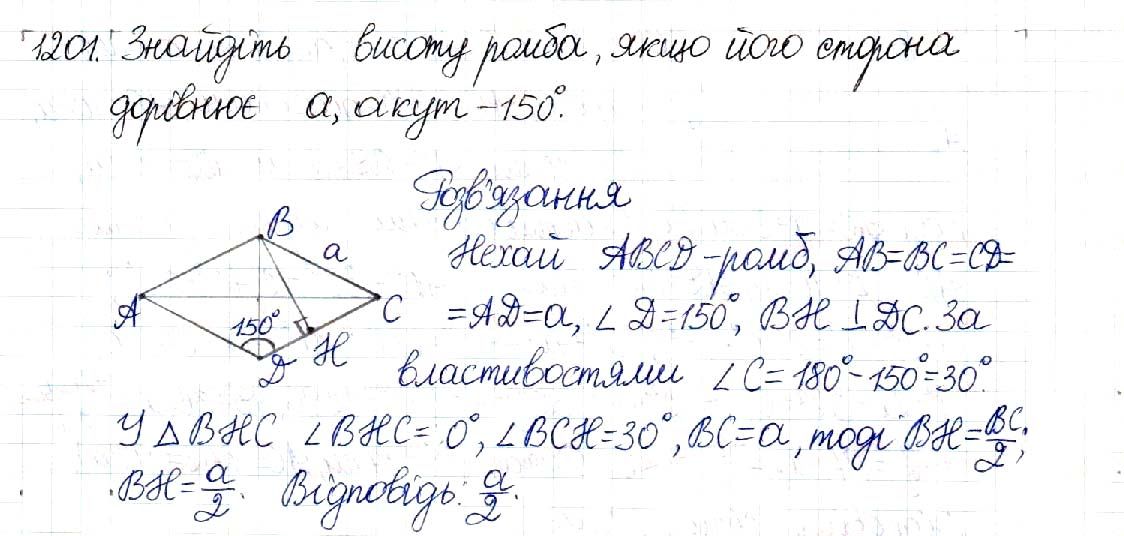 1201. Знайдіть висоту ромба, якщо його сторона
дорівнює a, а кут – 150°.
Розв'язання
B
a
A
150°
C
D
H
Нехай ABCD – ромб, AB=BC=CD=
=AD=a, ∠D=150°, BH⊥DC. За
властивостями ∠C=180°-150°=30°.
У △BHC ∠BHC= 0°, ∠BCH=30°, BC=a, тоді BH=BC/2;
BH=a/2. Відповідь: a/2.